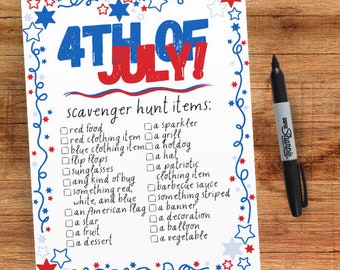 4TH OF
JULY!
scavenger hunt items:
red food
red clothing item
blue clothing item
flip flops
sunglasses
any kind of bug
something red,
white, and blue
an American Flag
a star
a fruit
a dessert
a sparkler
a grill
a hotdog
a hat
a patriotic
clothing item
barbecue sauce
something striped
a banner
a decoration
a balloon
a vegetable
Sharpie